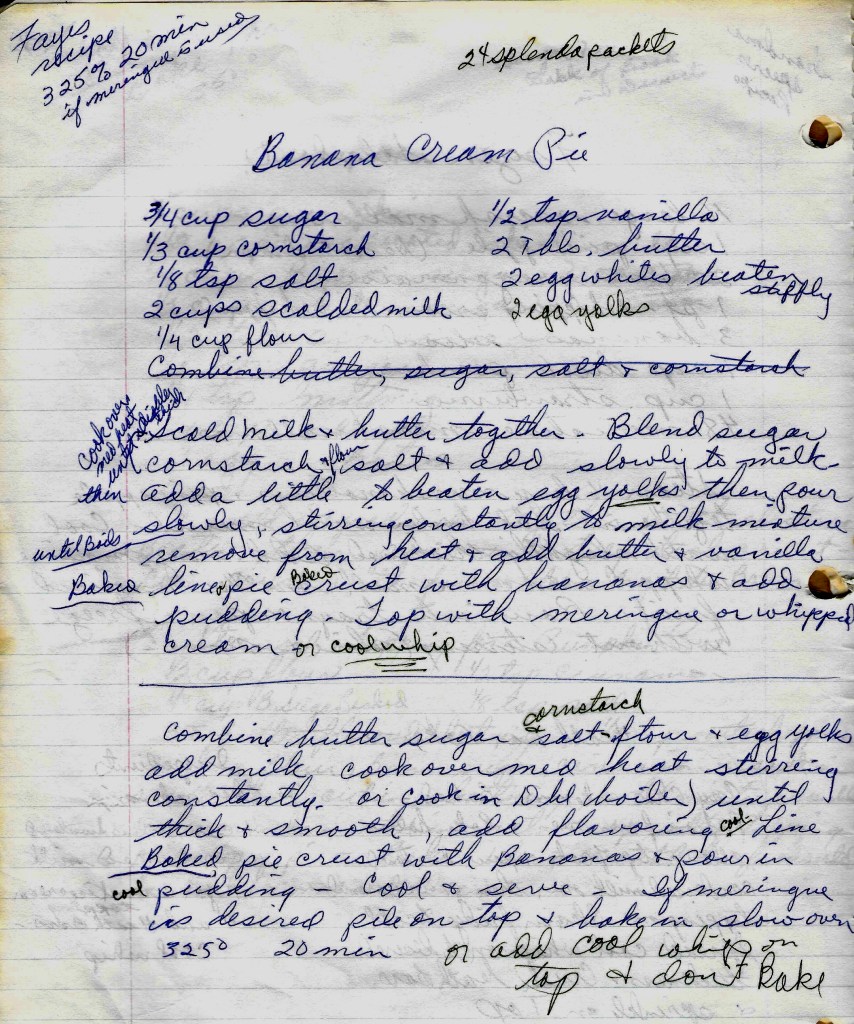 Fayes
recipe
325° 20 min
if meringue is used
24 splenda packets
Banana Cream Pie
3/4 cup sugar
1/3 cup cornstarch
1/8 tsp salt
2 cups scalded milk
1/4 cup flour
1/2 tsp vanilla
2 Tbls. butter
2 egg whites beaten
stiffly
2 egg yolks
Combine butter, sugar, salt & cornstarch
cook over
med heat
until slightly
thick
scald milk & butter together - Blend sugar
cornstarch & flour salt & add slowly to milk -
then add a little to beaten egg yolks then pour
slowly, stirring constantly to milk mixture
until Boils
remove from heat & add butter & vanilla
Baked
line pie Baked crust with bananas & add
pudding - Top with meringue or whipped
cream or coolwhip
cornstarch
Combine butter sugar & salt - flour & egg yolks
add milk, cook over med heat stirring
constantly. or (cook in Dbl boiler) until
thick & smooth, add flavoring cool - Line
Baked pie crust with Bananas & pour in
cool pudding - Cool & serve - If meringue
is desired pile on top & bake in slow oven
325° 20 min or add cool whip on
top & don't Bake